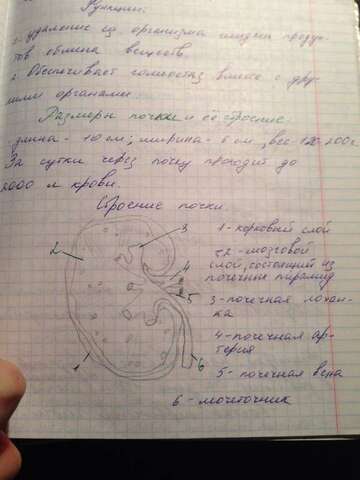 Функции:
1. удаление из организма жидких продук-
тов обмена веществ.
2. Обеспечивает гомеостаз вместе с дру-
гими органами.
Размеры почки и её строение:
длина - 10 см; ширина - 6 см, вес - 120-200г.
За сутки через почку проходит до
2000 л крови.
Строение почки.
1 - корковый слой
2 - мозговой
слой, состоящий из
почечных пирамид
3 - почечная лохан-
ка
4 - почечная ар-
терия
5 - почечная вена
6 - мочеточник
3
2
4
5
1
6